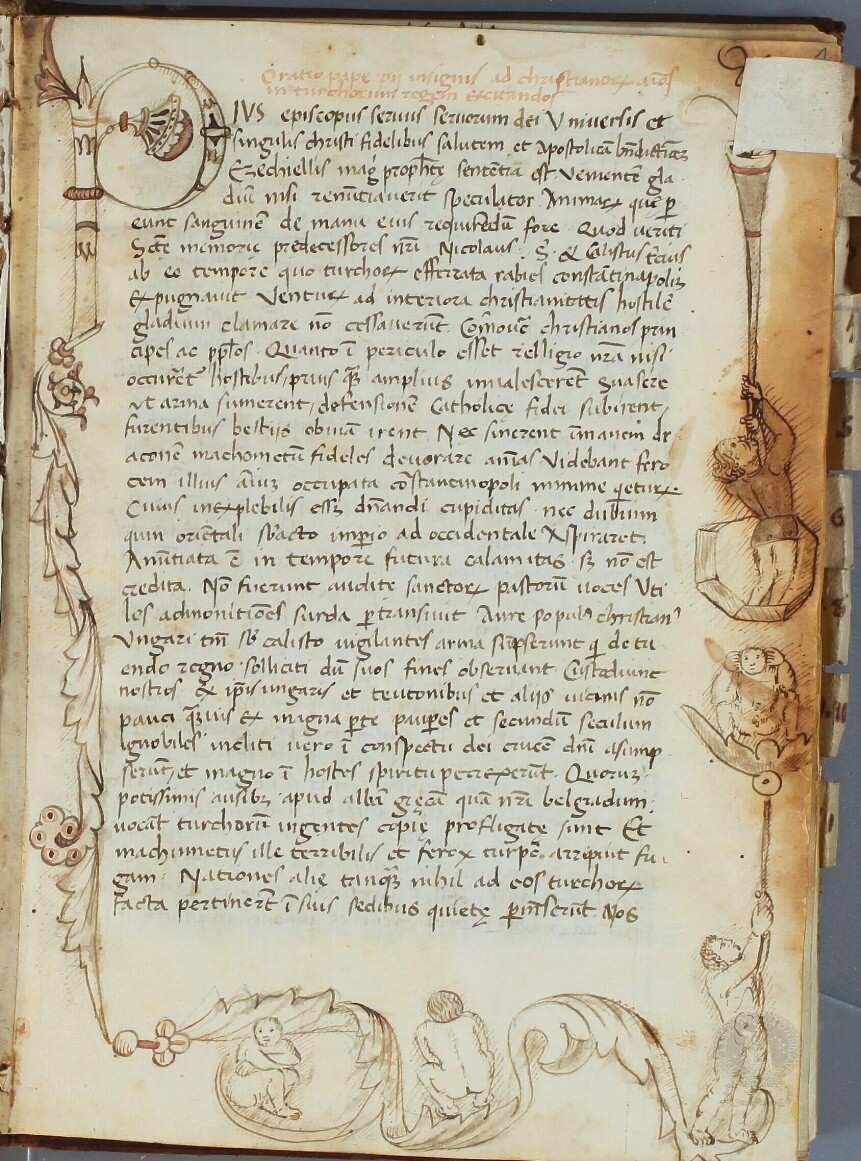 Oratio pape pii insignis ad christianorꝝ aı̄os
in turchorum regem excitandos
PIVS episcopus servus servorum dei Universis et
singulis christi fidelibus salutem et Apostolicā bn̄dictiōeʒ
Ezechiellis mag̃ prophȩtȩ sententia est vementē gla
diū nisi renūtiaverit speculator Animarꝝ que ꝑ
eunt sanguinē de manu eius requirēdū fore. Quod veriti
Scē memorie predecessores nr̄i Nicolaus .S. & Calistus t̄cius
ab eo tempore quo turchorꝝ efferata rabies constātinapoliʒ
expugnavit venturꝝ ad interiora christianitatis hostilē
gladium clamare nō cessaverūt. Cōmovē christianos prin
cipes ac pp̄los. Quanto ī periculo esset relligio nr̄a nisi
occurrēt hostibus prius qʒ amplius invalescerēt suasere
ut arma sumerent, defensionē catholice fidei subirent,
furentibus bestijs obviā irent. Nec sinerent īmanem dr
aconē machometū fideles devorare aīas videbant fero
cem illius aīuʒ occupata cōstantinopoli minime q̇eturꝝ
Cuius inexplebilis esset dn̄andi cupiditas nec dubium
quin orientali sb̄acto imꝑio ad occidentale Aspiraret.
Anūtiata ē in tempore futura calamitas sʒ nō est
credita. Nō fuerunt audite sanctorꝝ pastorū voces uti
les admonitiōes surda ꝑtransivit Aure populꝰ christianꝰ
Ungari tm̄ sb̄ calisto vigilantes arma sūpserunt q̇ de tu
endo regno solliciti dū suos fines observant Custodiunt
nostros & ip̄is ungaris et teutonibus et aliis vicinis nō
pauci qʒvis ex magna ꝑte pauꝑes et secundū seculum
ignobiles incliti vero ī conspectu dei crucē dn̄i asump
serunt, et magno ī hostes spiritu perrexerūt. Quoruʒ
potissimis ausibʒ apud albā grȩcā quā nr̄i belgradum
vocāt turchorū ingentes copiȩ profligate sunt Et
machumetus ille terribilis et ferox turpē arripuit fu
gam. Nationes alie tanqʒ nihil ad eos turchorꝝ
facta pertinerēt ī suis sedibus quietȩ ꝑmāserūt. Nos